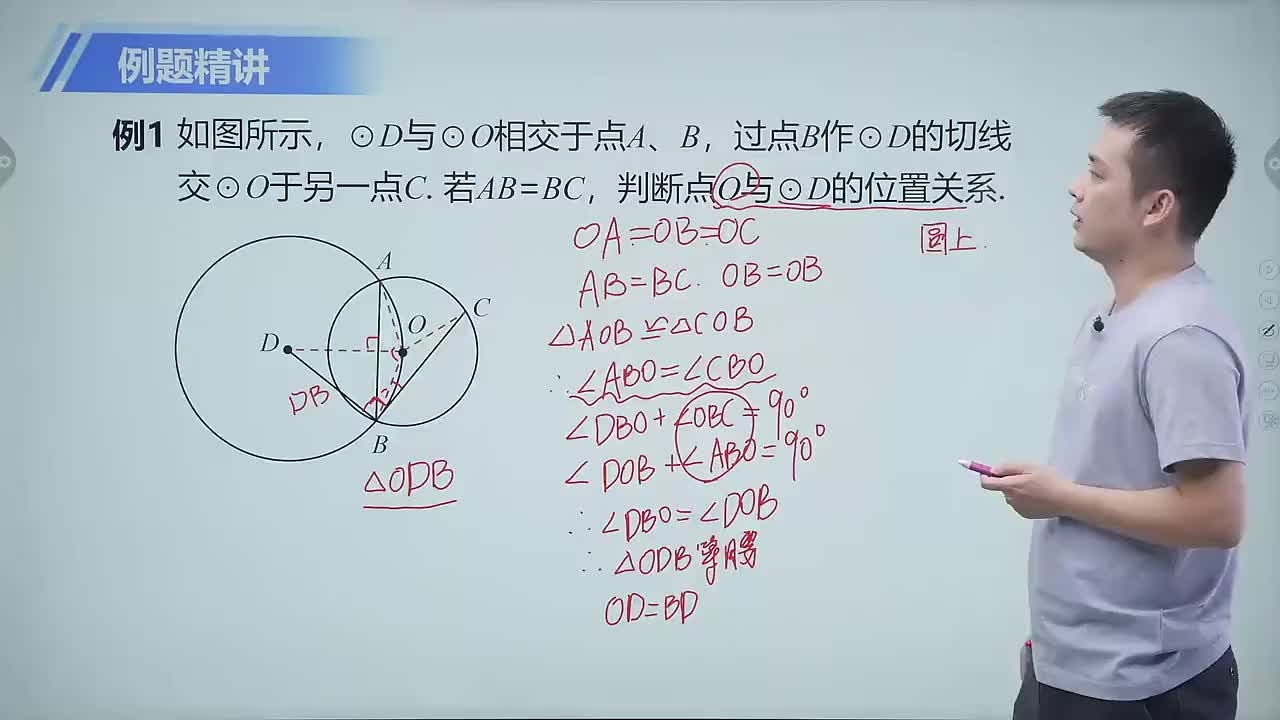 例题精讲
例1 如图所示，⊙D与⊙O相交于点A、B，过点B作⊙D的切线
交⊙O于另一点C. 若AB=BC，判断点O与⊙D的位置关系.
圆上.
OA=OB=OC
AB=BC. OB=OB
△AOB≌△COB
∴∠ABO=∠CBO
∠DBO+∠OBC=90°
∠DOB+∠ABO=90°
∴∠DBO=∠DOB
∴△ODB等腰
OD=BD
A
C
O
D
DB
B
△ODB